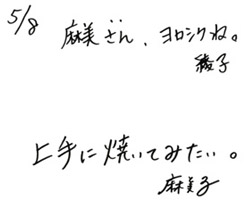 5/8
麻美さん、ヨロシクね。
綾子
上手に焼いてみたい。
麻美子